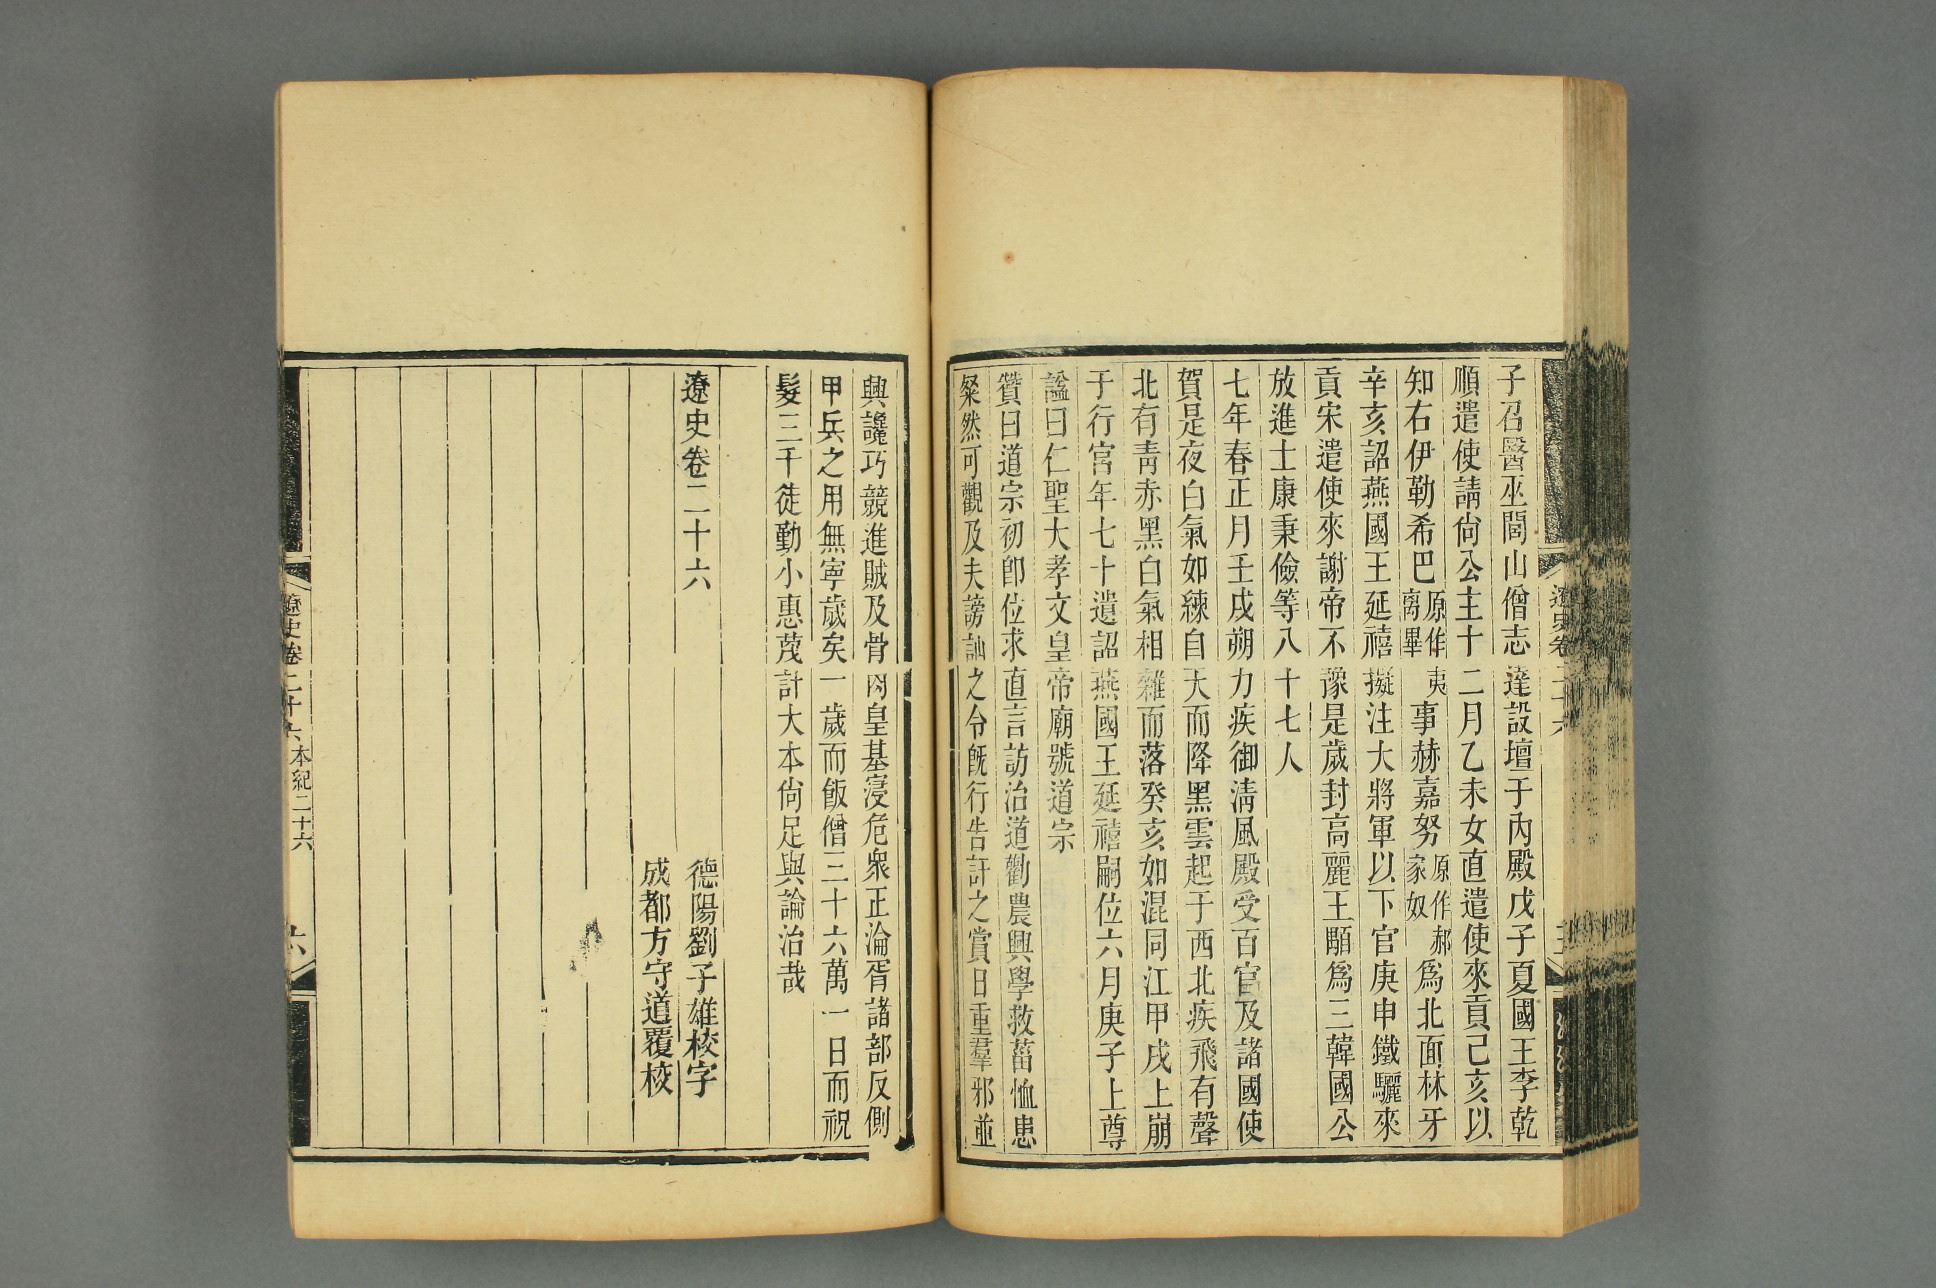 子召醫巫閭山僧志達設壇于內殿戊子夏國王李乾
順遣使請尙公主十二月乙未女直遣使來貢己亥以
知右伊勒希巴原作夷離畢事赫嘉努原作郝家奴爲北面林牙
辛亥詔燕國王延禧擬注大將軍以下官庚申鐵驪來
貢宋遣使來謝帝不豫是歲封高麗王顒爲三韓國公
放進士康秉儉等八十七人
七年春正月壬戌朔力疾御淸風殿受百官及諸國使
賀是夜白氣如練自天而降黑雲起于西北疾飛有聲
北有靑赤黑白氣相雜而落癸亥如混同江甲戌上崩
于行宮年七十遺詔燕國王延禧嗣位六月庚子上尊
諡曰仁聖大孝文皇帝廟號道宗
贊曰道宗初卽位求直言訪治道勸農興學救菑恤患
粲然可觀及夫謗訕之令旣行告訐之賞日重羣邪並
興讒巧競進賊及骨肉皇基寖危衆正淪胥諸部反側
甲兵之用無寧歲矣一歲而飯僧三十六萬一日而祝
髮三千徒勤小惠蔑計大本尙足與論治哉
遼史卷二十六
德陽劉子雄校字
成都方守道覆校
遼史卷二十六
本紀二十六
六
遼史卷二十六